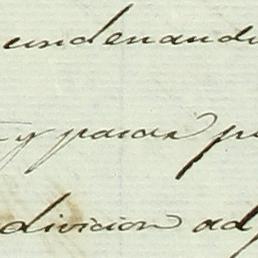 ondenando
y pasar p
division ad